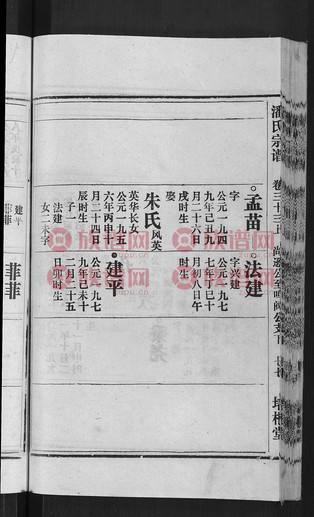 潘氏宗谱
卷三十三上
培根堂
孟苗
字
公元一九四
九年己丑九
月二十六日
戌时生
娶
朱氏凤英
英华长女
公元一九五
六年丙申十
月二十四日
辰时生
子一
法建
女二未字
法建
字兴建
公元一九七
七年丁巳十
月初八日午
时生
建平
公元一九七
九年己未十
二月二十五
日卯时生
建平
菲菲
族谱网
zupu.cn